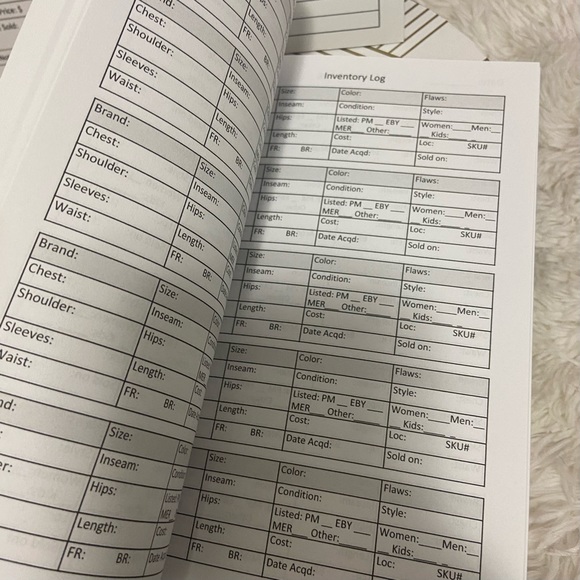 Price: $
Sold:
Chest:
Shoulder:
Sleeves:
Waist:
Length:
FR:
Size:
Inseam:
Hips:
Length:
FR: BR:
Brand:
Chest:
Shoulder:
Sleeves:
Waist:
Size:
Inseam:
Hips:
Length:
FR: BR:
Brand:
Chest:
Shoulder:
Sleeves:
Waist:
Size:
Inseam:
Hips:
Length:
FR: BR:
Size:
Inseam:
Hips:
Length:
FR: BR:
Inventory Log
Size: Color: Flaws:
Inseam: Condition: Style:
Hips: Listed: PM __ EBY ___ Women:___Men:_
MER___ Other:______ __ Kids:_____
Length: Cost: Loc: SKU#
FR: BR: Date Acqd: Sold on:
Size: Color: Flaws:
Inseam: Condition: Style:
Hips: Listed: PM __ EBY ___ Women:___Men:_
MER___ Other:______ __ Kids:_____
Length: Cost: Loc: SKU#
FR: BR: Date Acqd: Sold on:
Size: Color: Flaws:
Inseam: Condition: Style:
Hips: Listed: PM __ EBY ___ Women:___Men:_
MER___ Other:______ __ Kids:_____
Length: Cost: Loc: SKU#
FR: BR: Date Acqd: Sold on:
Size: Color: Flaws:
Inseam: Condition: Style:
Hips: Listed: PM __ EBY ___ Women:___Men:_
MER___ Other:______ __ Kids:_____
Length: Cost: Loc: SKU#
FR: BR: Date Acqd: Sold on:
Size: Color: Flaws:
Inseam: Condition: Style:
Hips: Listed: PM __ EBY ___ Women:___Men:_
MER___ Other:______ __ Kids:_____
Length: Cost: Loc: SKU#
FR: BR: Date Acqd: Sold on: